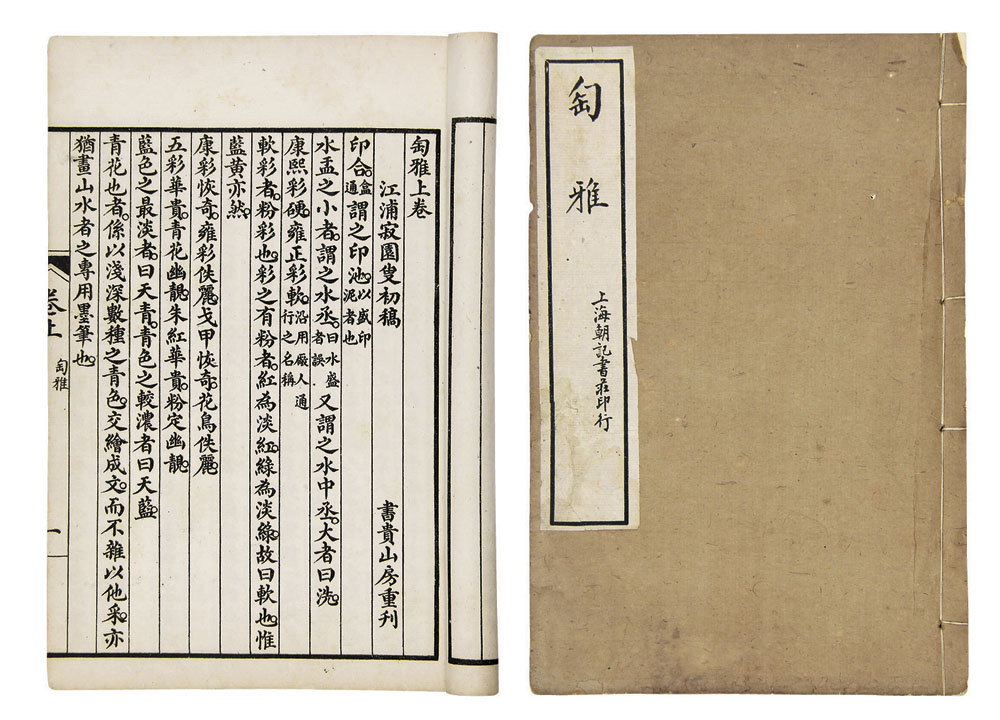 匋雅
上海朝記書莊印行
匋雅上卷
江浦寂園叟初稿 書貴山房重刊
印合。盒通謂之印池。以盛印泥者也
水盂之小者。謂之水丞。曰水盛者誤。又謂之水中丞。大者曰洗。
康熙彩硬。雍正彩軟。沿用厰人通行之名稱
軟彩者。粉彩也。彩之有粉者。紅為淡紅。綠為淡綠。故曰軟也。惟
藍黃亦然。
康彩恢奇。雍彩佚麗。戈甲恢奇。花鳥佚麗。
五彩華貴。青花幽靚。朱紅華貴。粉定幽靚。
藍色之最淡者。曰天青。青色之較濃者曰天藍。
青花也者。係以淺深數種之青色。交繪成文。而不雜以他采。亦
猶畫山水者之專用墨筆也。
卷上 匋雅 一